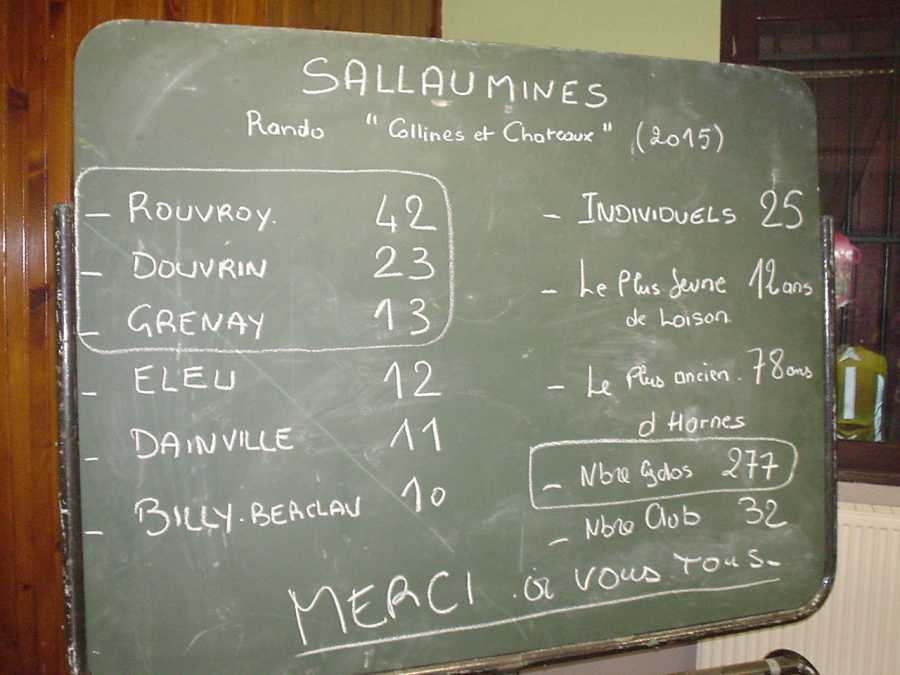 SALLAUMINES
Rando "Collines et Chateaux" (2015)
- ROUVROY. 42
- DOUVRIN 23
- GRENAY 13
- ELEU 12
- DAINVILLE 11
- BILLY-BERCLAU 10
- INDIVIDUELS 25
- Le Plus Jeune 12 ans
de Loison
- Le Plus ancien. 78 ans
d Harnes
- Nbre Cyclos 277
- Nbre Club 32
MERCI à VOUS TOUS-